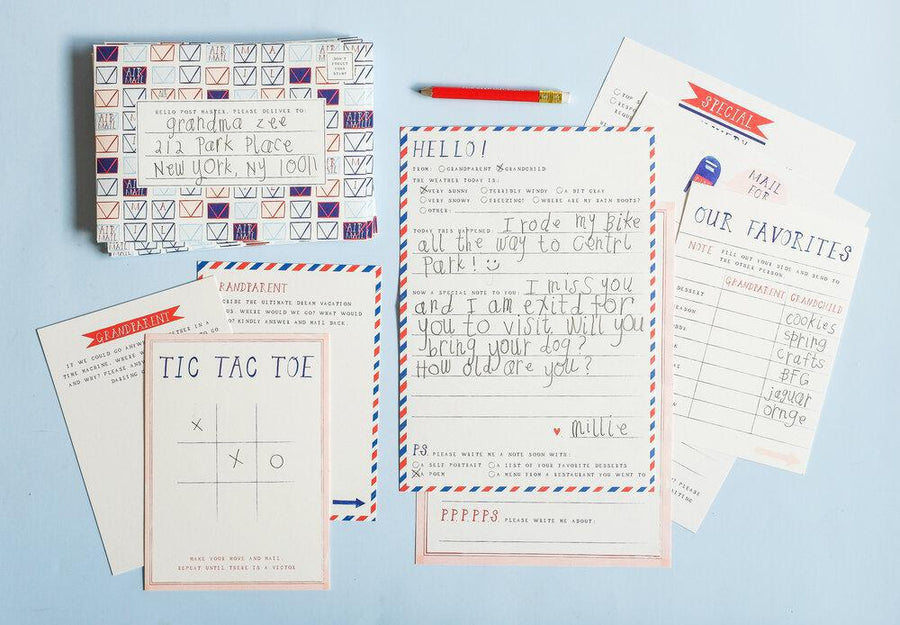 DON'T
FORGET
YOUR
STAMP
HELLO POST MASTER, PLEASE DELIVER TO:
grandma zee
212 Park Place
New york, ny 10011
AIR MAIL
SPECIAL
MAIL
FOR
HELLO!
FROM: GRANDPARENT GRANDCHILD
THE WEATHER TODAY IS:
VERY SUNNY TERRIBLY WINDY A BIT GRAY
VERY SNOWY FREEZING! WHERE ARE MY RAIN BOOTS?
OTHER:
TODAY THIS HAPPENED: I rode my bike
all the way to Centrl
Park!
NOW A SPECIAL NOTE TO YOU: I miss you
and I am exitd for
you to visit. Will you
bring your dog?
How old are you?
millie
P.S. PLEASE WRITE ME A NOTE SOON WITH:
A SELF PORTRAIT A LIST OF YOUR FAVORITE DESSERTS
A POEM A MENU FROM A RESTAURANT YOU WENT TO
P.P.P.P.P.S. PLEASE WRITE ME ABOUT:
OUR FAVORITES
NOTE FILL OUT YOUR SIDE AND SEND TO
THE OTHER PERSON.
GRANDPARENT GRANDCHILD
DESSERT cookies
spring
crafts
BFG
jaguar
ornge
GRANDPARENT
IF WE COULD GO
TIME MACHINE, WHERE
AND WHY? PLEASE
DARLING
GRANDPARENT
THE ULTIMATE DREAM VACATION
WHERE WOULD WE GO? WHAT WOULD
KINDLY ANSWER AND MAIL BACK.
TIC TAC TOE
X
X O
MAKE YOUR MOVE AND MAIL.
REPEAT UNTIL THERE IS A VICTOR